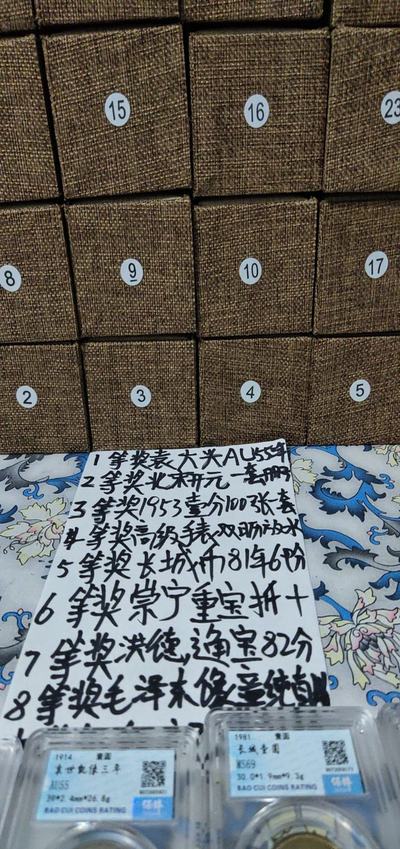 15
16
23
8
9
10
17
2
3
4
5
1等奖袁大头AU55
2等奖北宋开元
3等奖1953壹分100张一套
4等奖高级手表
5等奖长城币81年69分
6等奖崇宁重宝折十
7等奖洪德通宝82分
8等奖毛泽东像章纯银
1914 壹圆
袁世凯像三年
AU55
39*2.4mm*26.8g
BAO CUI COINS RATING
1981 壹圆
长城壹圆
MS69
30.0*1.9mm*9.3g
BAO CUI COINS RATING